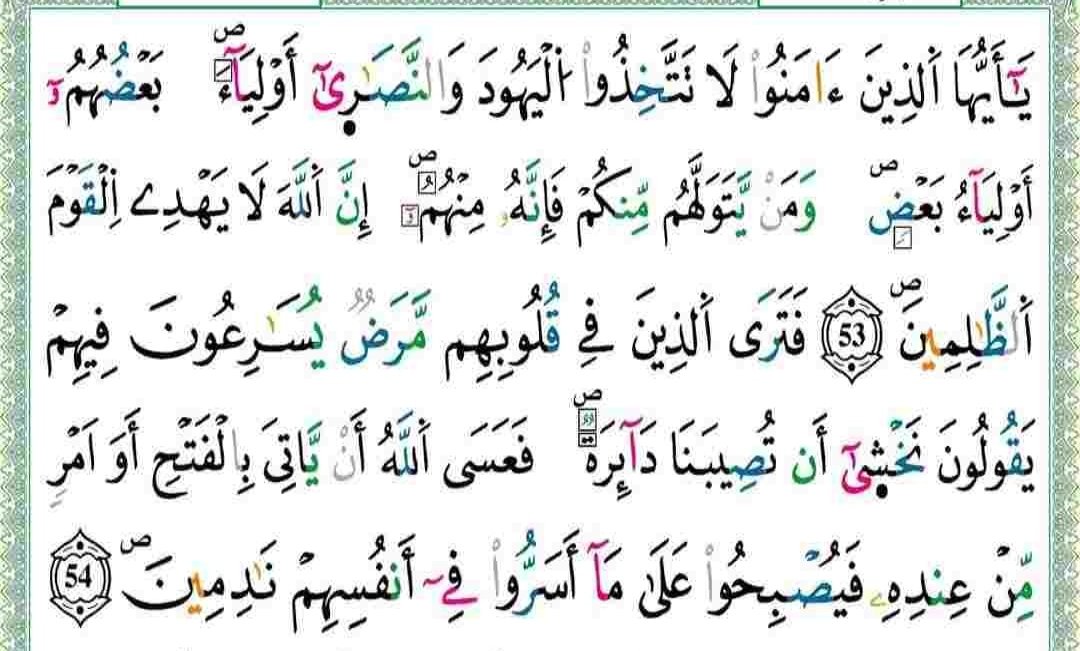 يَـٰٓأَيُّهَا اَ۬لذِينَ ءَامَنُواْ لَا تَتَّخِذُواْ اُ۬لْيَهُودَ وَالنَّصَـٰرِىٰٓ أَوْلِيَآءَۖ بَعْضُهُمُۥٓ
أَوْلِيَآءُ بَعْضٖۖ وَمَنْ يَّتَوَلَّهُم مِّنكُمْ فَإِنَّهُۥ مِنْهُمُۥٓۖ إِنَّ اَ۬للَّهَ لَا يَهْدِے اِ۬لْقَوْمَ
اَ۬لظَّـٰلِمِينَۖ 53 فَتَرَى اَ۬لذِينَ فِے قُلُوبِهِم مَّرَضٞ يُسَـٰرِعُونَ فِيهِمْ
يَقُولُونَ نَخْشِىٰٓ أَن تُصِيبَنَا دَآئِرَةٞۖ فَعَسَى اَ۬للَّهُ أَنْ يَّاتِيَ بِالْفَتْحِ أَوَ اَمْرٖ
مِّنْ عِندِهِۦ فَيُصْبِحُواْ عَلَىٰ مَآ أَسَرُّواْ فِےٓ أَنفُسِهِمْ نَـٰدِمِينَۖ 54